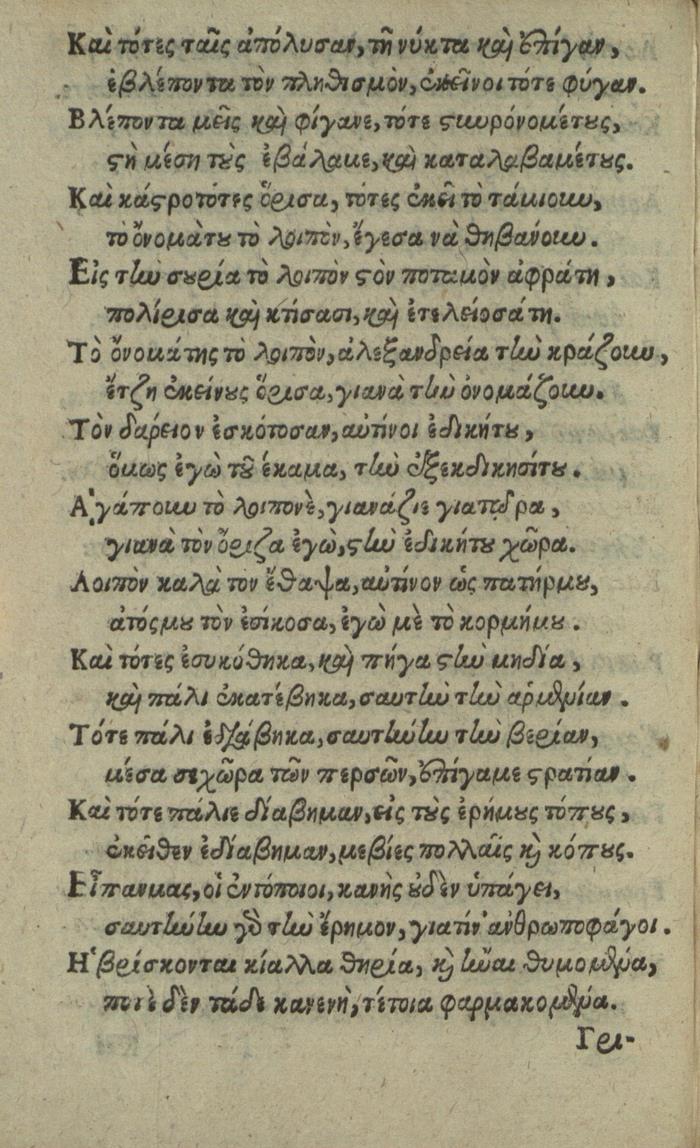 Καὶ τότες ταῖς ἀπόλυσαν, τὴ νύκτα καὶ ἐπίγαν,
ἐβλέποντα τὸν πληθισμὸν, ἐκεῖνοι τότε φύγαν.
Βλέποντα μεῖς καὶ φίγανε, τότε ςκυρόνομέτους,
ςὴ μέση τοὺς ἐβάλαμε, καὶ καταλαβαμέτους.
Καὶ κάςρο τότες ὅρισα, τότες ἐκεῖ τὸ τάμιουν,
τὸ ὄνομὰτου τὸ λοιπὸν, ἔγεσα νὰ θηβάνουν.
Εἰς τὴν συρία τὸ λοιπὸν ςὸν ποταμὸν ἀφράτη,
πολίρισα καὶ κτήσασι, καὶ ἐτελείοσάτη.
Τὸ ὄνομάτης τὸ λοιπὸν, ἀλεξανδρεία τὴν κράζουν,
ἔτζη ἐκείνους ὅρισα, γιανὰ τὴν ὀνομάζουν.
Τὸν δαρείον ἐσκότοσαν, αὐτίνοι ἐδικήτου,
ὅμως ἐγὼ τοῦ έκαμα, τὴν ἐξεκδικησίτου.
Ἀγάπουν τὸ λοιπονὲ, γιανάζιε γιαπέδρα,
γιανὰ τὸν ὅριζα ἐγὼ, ςτὴν ἐδικήτου χῶρα.
Λοιπὸν καλὰ τον ἔθαψα, αὐτίνον ὡς πατήρμου,
ἀτόςμου τὸν ἐσίκοσα, ἐγὼ μὲ τὸ κορμήμου.
Καὶ τότες ἐσυκόθηκα, καὶ πήγα ςτὴν μηδία,
καὶ πάλι ἐκατέβηκα, σαυτὴν τὴν ἀρμενίαν.
Τότε πάλι ἐδιάβηκα, σαυτήνην τὴν βερίαν,
μέσα σε χῶρα τῶν περσῶν, ἐπίγαμε ςρατίαν.
Καὶ τότε πάλιε δίαβημαν, εἰς τοὺς ἐρήμους τόπους,
ἐκεῖθεν ἐδίαβημαν, με βίες πολλαῖς κ̀ κόπους.
Εἶπανμας, οἱ ἐντόποιοι, κανὴς οὐδὲν ὑπάγει,
σαυτήνην γὰρ τὴν ἔρημον, γιατίν' ἀνθρωποφάγοι.
Ἡ βρίσκονται κίαλλα θηρία, κ̀ ἦναι θυμομένα,
ποτὲ δὲν τάδε κανενὴ, τέτοια φαρμακομένα.
Γρι-